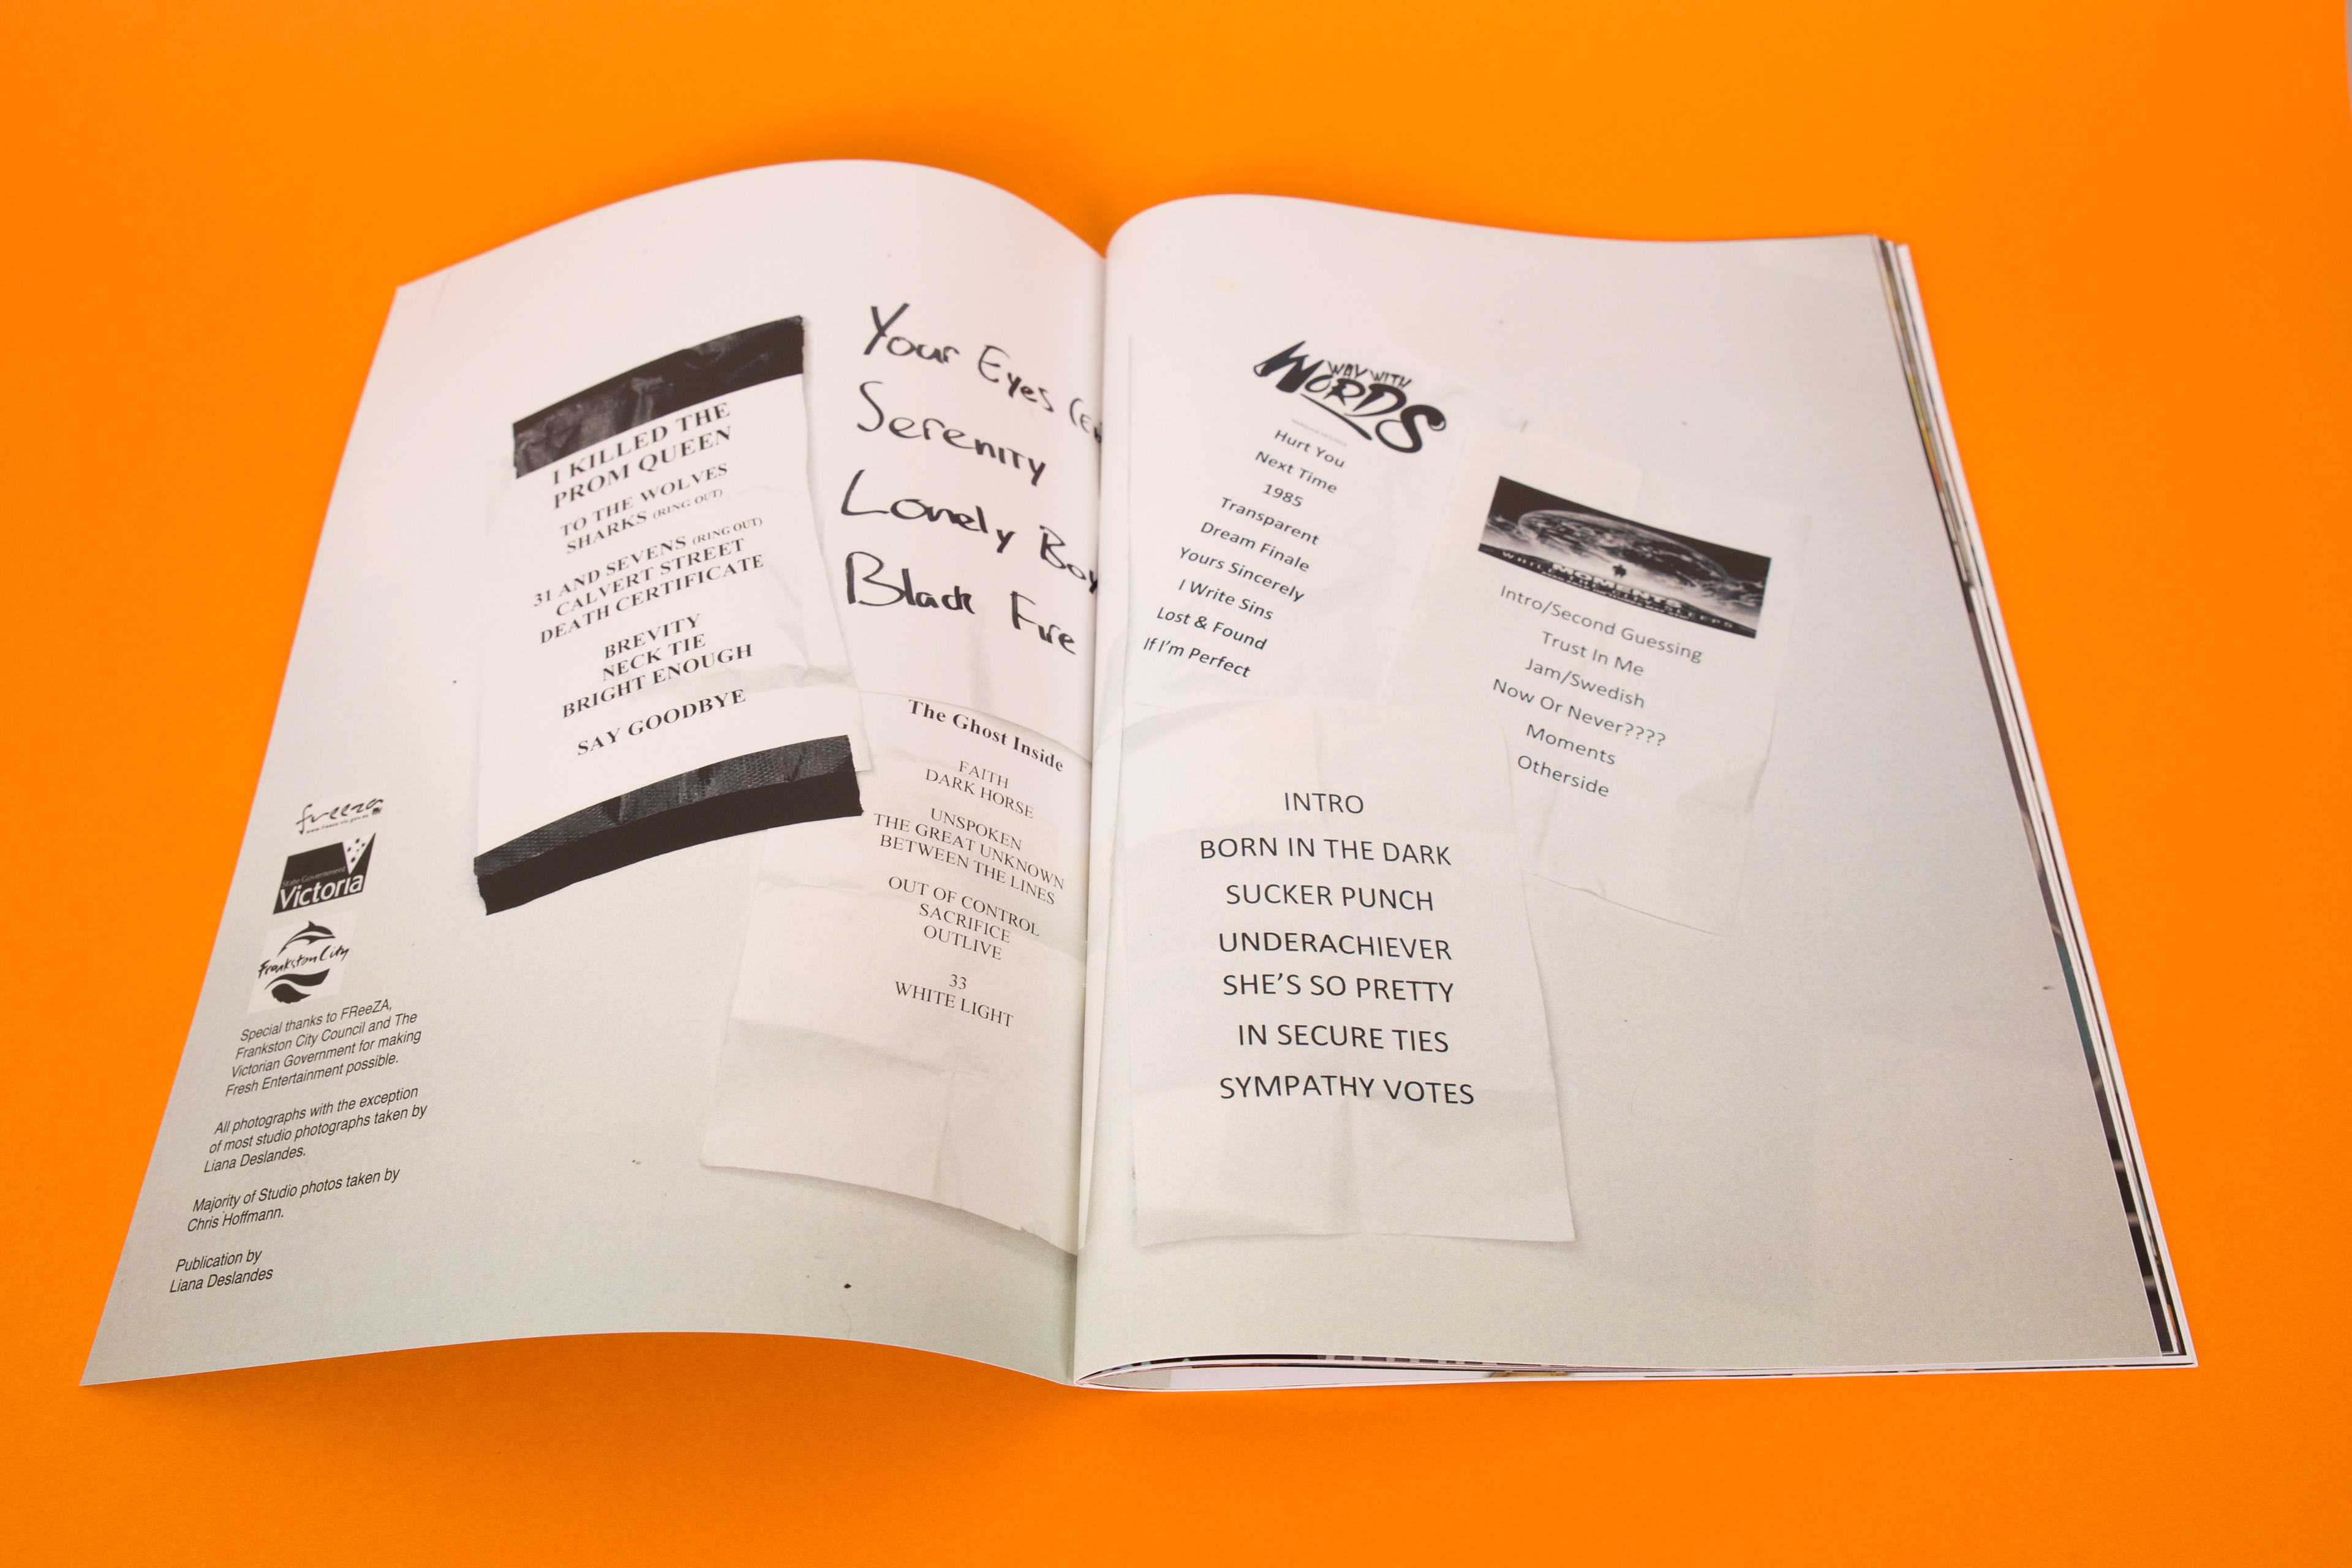 I KILLED THE
PROM QUEEN
TO THE WOLVES
SHARKS (RING OUT)
31 AND SEVENS (RING OUT)
CALVERT STREET
DEATH CERTIFICATE
BREVITY
NECK TIE
BRIGHT ENOUGH
SAY GOODBYE
Your Eyes
Serenity
Lonely Boy
Black Fire
The Ghost Inside
FAITH
DARK HORSE
UNSPOKEN
THE GREAT UNKNOWN
BETWEEN THE LINES
OUT OF CONTROL
SACRIFICE
OUTLIVE
33
WHITE LIGHT
freeza
State Government
Victoria
Frankston City
Special thanks to FReeZA,
Frankston City Council and The
Victorian Government for making
Fresh Entertainment possible.
All photographs with the exception
of most studio photographs taken by
Liana Deslandes.
Majority of Studio photos taken by
Chris Hoffmann.
Publication by
Liana Deslandes
WAY WITH
WORDS
Hurt You
Next Time
1985
Transparent
Dream Finale
Yours Sincerely
I Write Sins
Lost & Found
If I'm Perfect
MOMENTS
Intro/Second Guessing
Trust In Me
Jam/Swedish
Now Or Never????
Moments
Otherside
INTRO
BORN IN THE DARK
SUCKER PUNCH
UNDERACHIEVER
SHE'S SO PRETTY
IN SECURE TIES
SYMPATHY VOTES